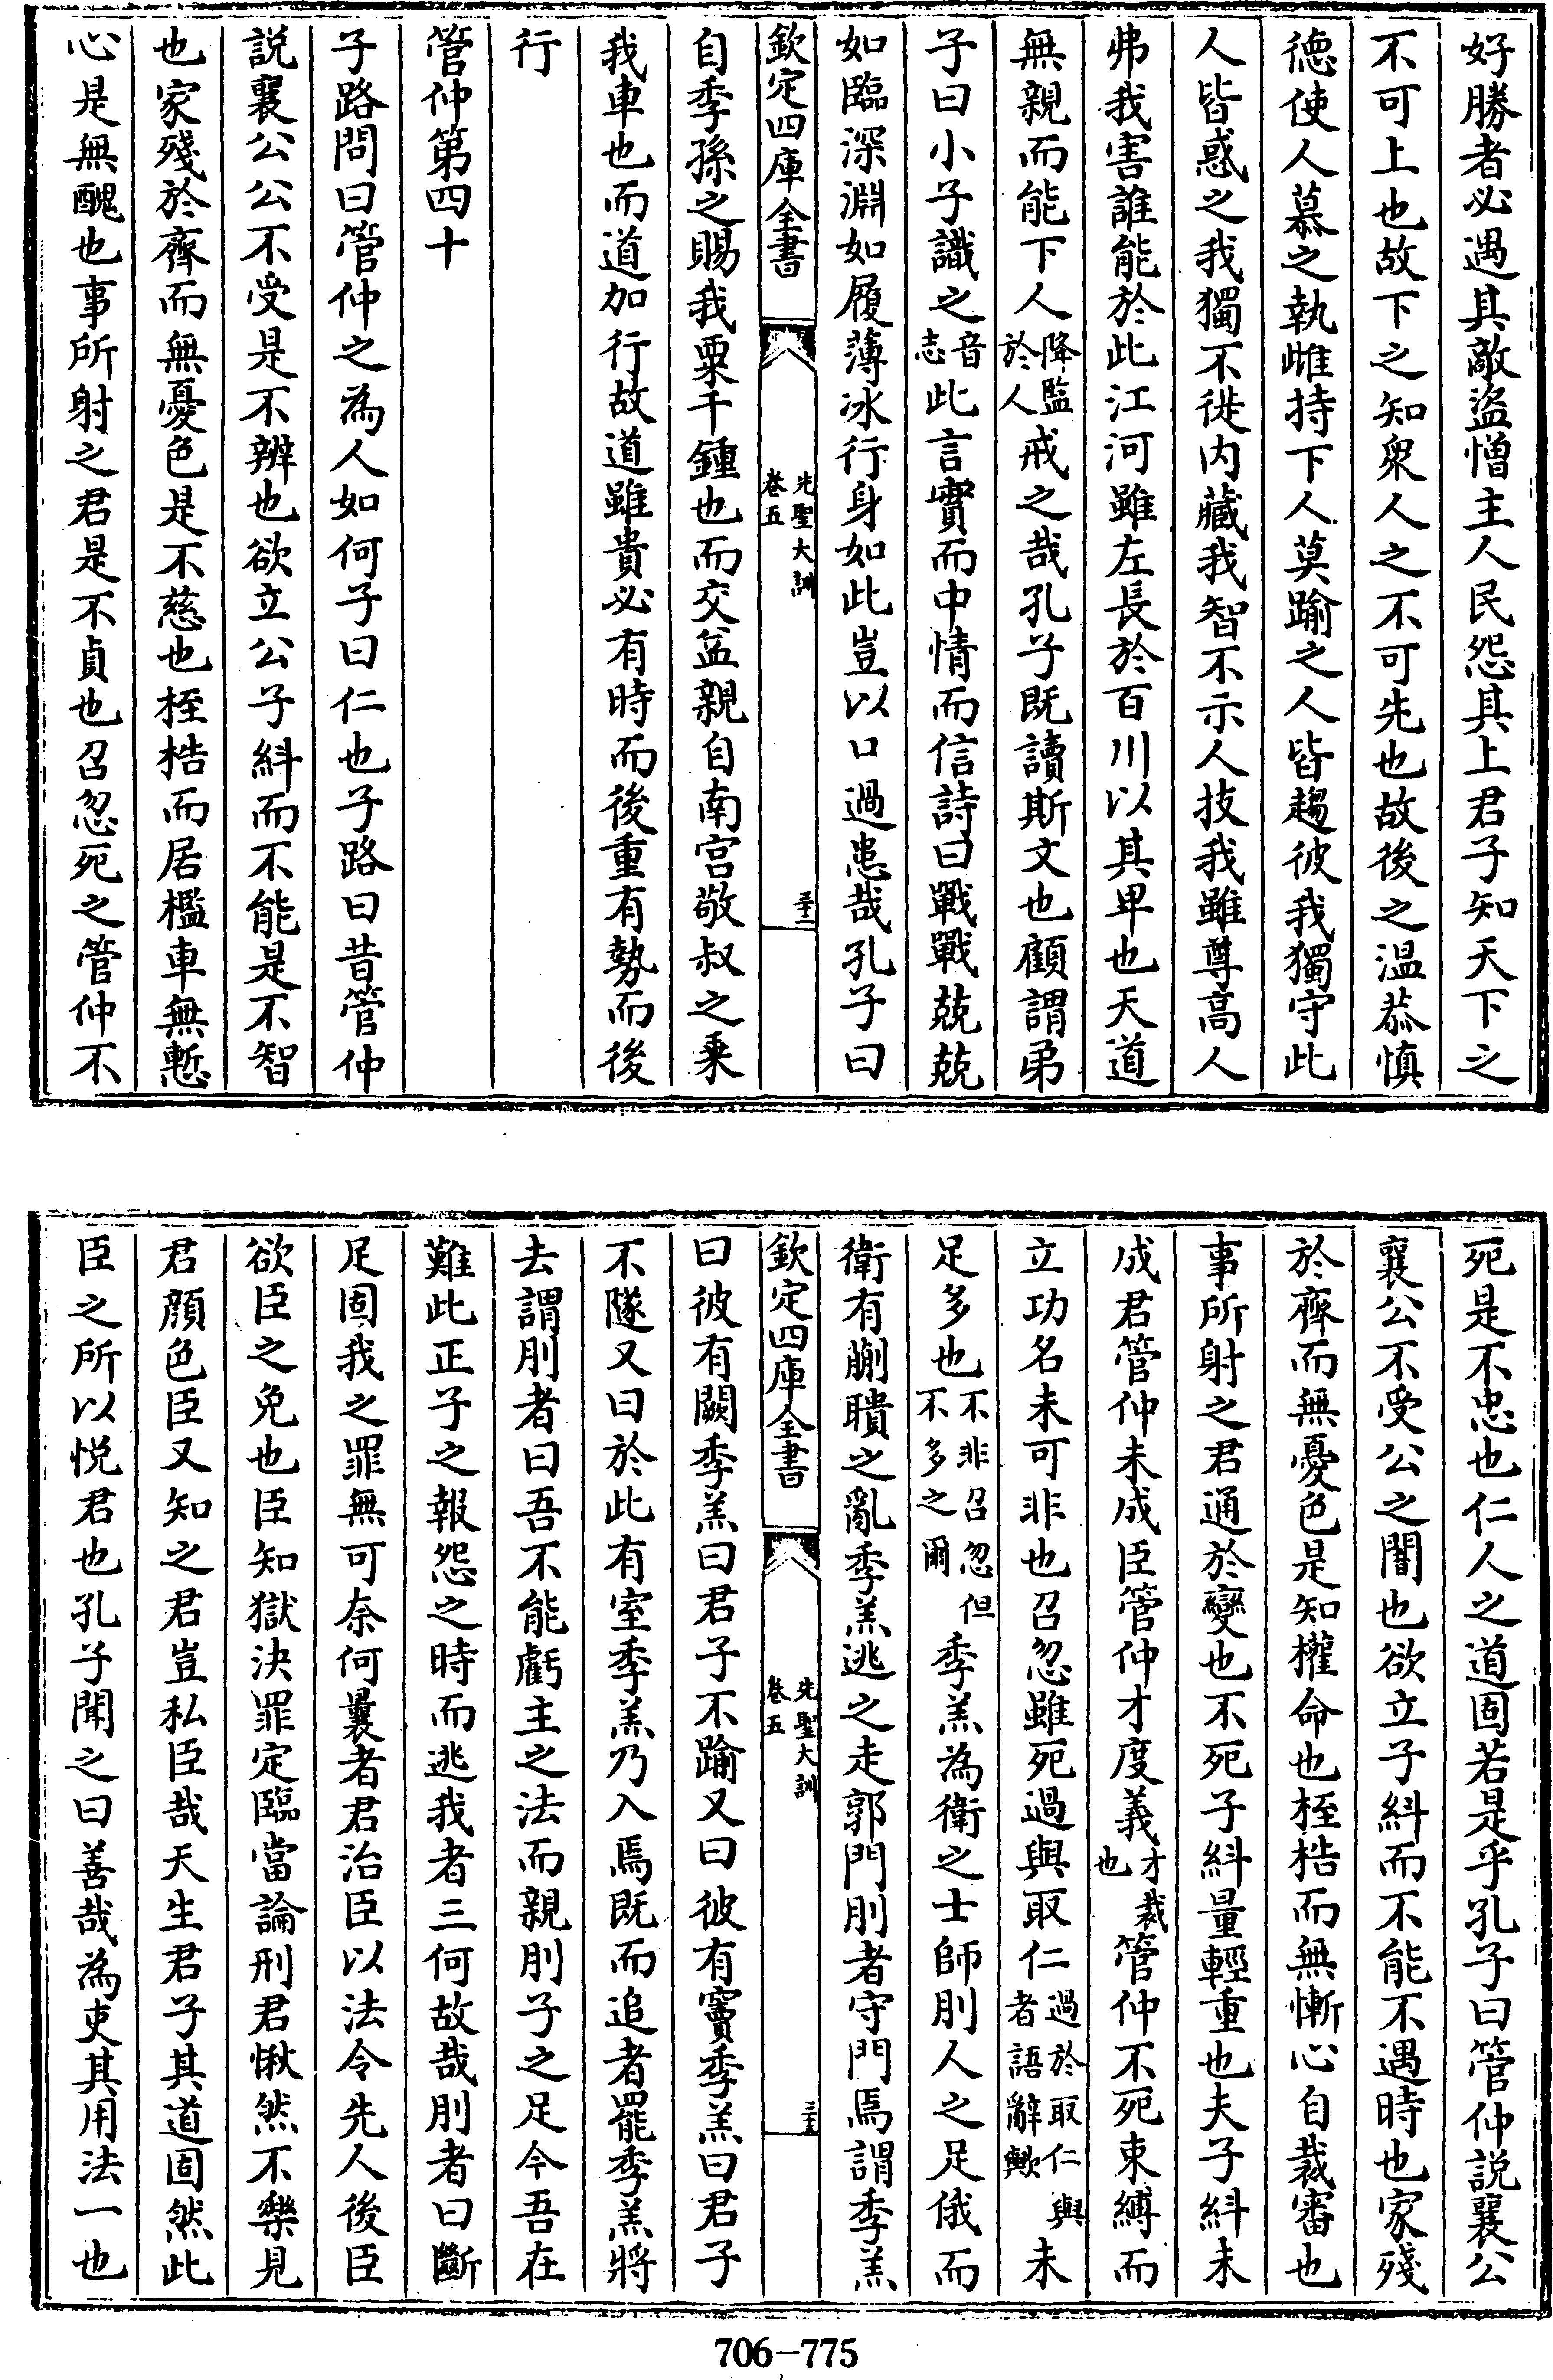 好勝者必遇其敵盜憎主人民怨其上君子知天下之
不可上也故下之知衆人之不可先也故後之温恭慎
德使人慕之執雌持下人莫踰之人皆趨彼我獨守此
人皆惑之我獨不徙内藏我智不示人技我雖尊高人
弗我害誰能於此江河雖左長於百川以其卑也天道
無親而能下人降監於人戒之哉孔子既讀斯文也顧謂弟
子曰小子識之音志此言實而中情而信詩曰戰戰兢兢
如臨深淵如履薄冰行身如此豈以口過患哉孔子曰
欽定四庫全書 先聖大訓 卷五
自季孫之賜我粟千鍾也而交益親自南宫敬叔之乗
我車也而道加行故道雖貴必有時而後重有勢而後
行
管仲第四十
子路問曰管仲之為人如何子曰仁也子路曰昔管仲
說襄公公不受是不辨也欲立公子糾而不能是不智
也家殘於齊而無憂色是不慈也桎梏而居檻車無慙
心是無醜也事所射之君是不貞也召忽死之管仲不
死是不忠也仁人之道固若是乎孔子曰管仲說襄公
襄公不受公之闇也欲立子糾而不能不遇時也家殘
於齊而無憂色是知權命也桎梏而無慚心自裁審也
事所射之君通於變也不死子糾量輕重也夫子糾未
成君管仲未成臣管仲才度義才裁也管仲不死束縛而
立功名未可非也召忽雖死過與取仁過於取仁與者語辭歟未
足多也不非召忽但不多之爾季羔為衛之士師刖人之足俄而
衛有蒯聵之亂季羔逃之走郭門刖者守門焉謂季羔
欽定四庫全書 先聖大訓 卷五
曰彼有闕季羔曰君子不踰又曰彼有竇季羔曰君子
不隧又曰於此有室季羔乃入焉既而追者罷季羔將
去謂刖者曰吾不能虧主之法而親刖子之足今吾在
難此正子之報怨之時而逃我者三何故哉刖者曰斷
足固我之罪無可奈何曩者君治臣以法令先人後臣
欲臣之免也臣知獄決罪定臨當論刑君愀然不樂見
君顔色臣又知之君豈私臣哉天生君子其道固然此
臣之所以悦君也孔子聞之曰善哉為吏其用法一也
706-775